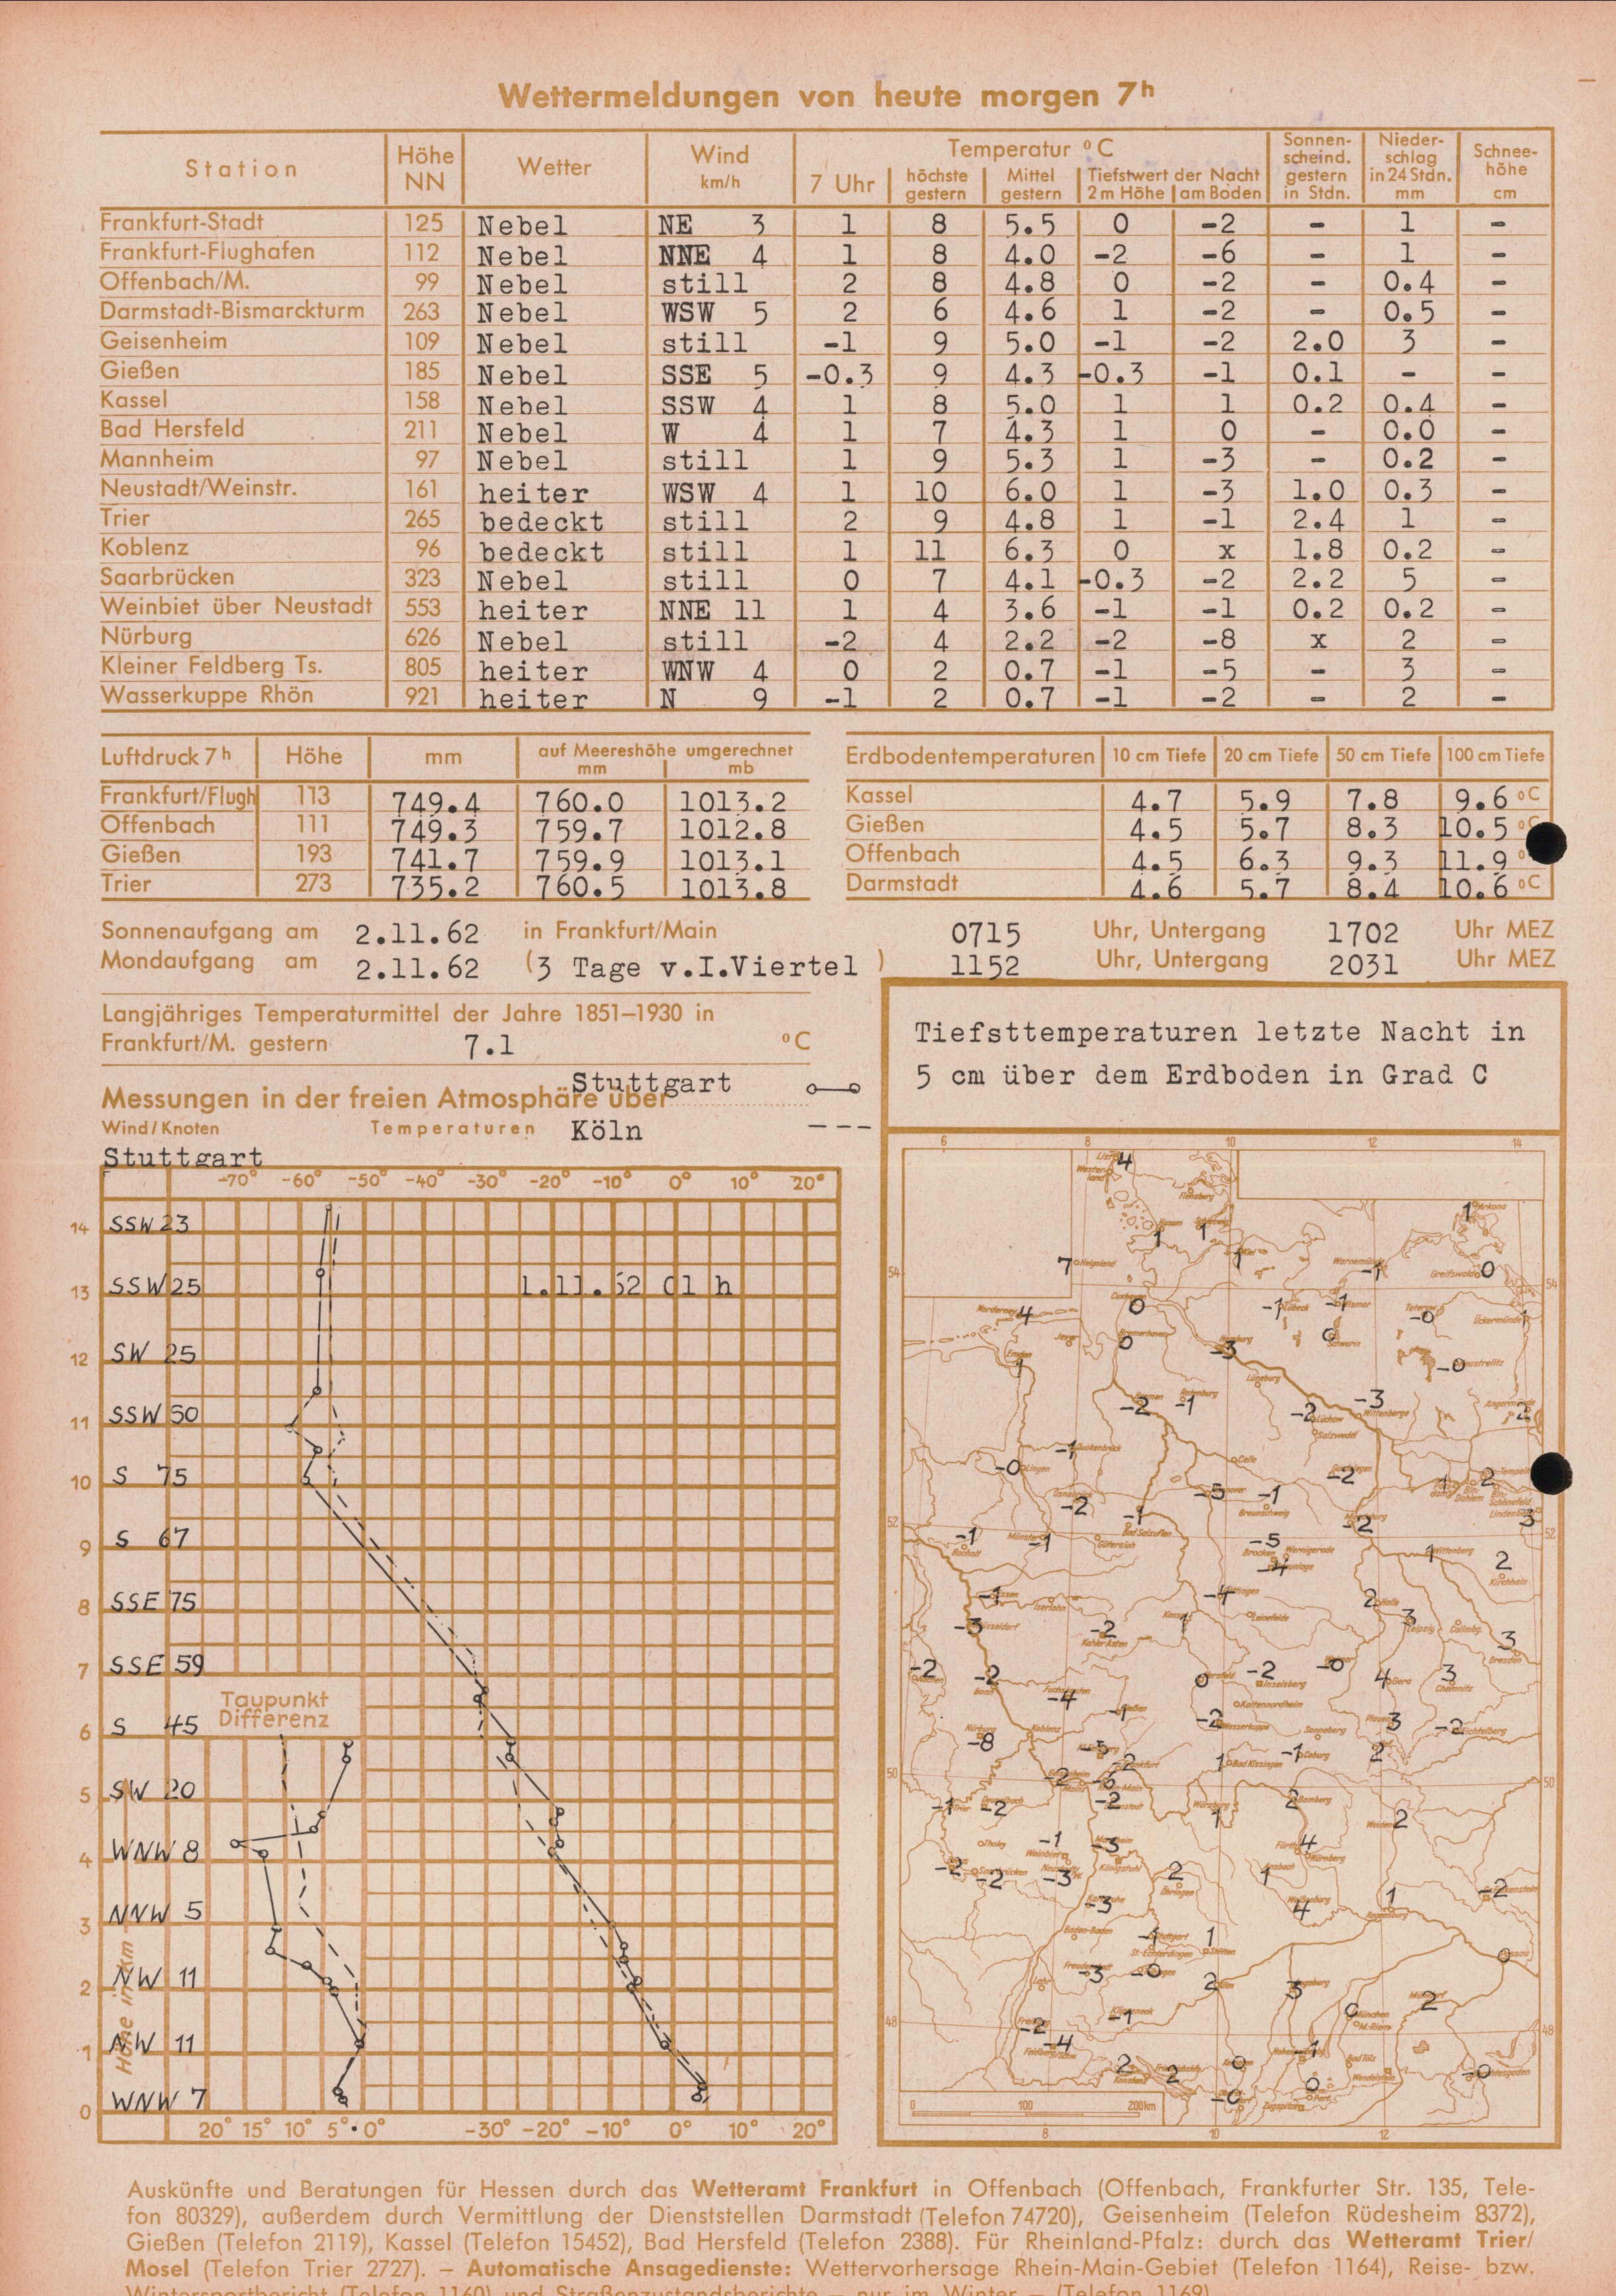 Wettermeldungen von heute morgen 7h
Station Höhe NN Wetter Wind km/h Temperatur °C 7 Uhr höchste gestern Mittel gestern Tiefstwert der Nacht 2 m Höhe am Boden Sonnen-scheind. gestern in Stdn. Nieder-schlag in 24 Stdn. mm Schnee-höhe cm
Frankfurt-Stadt 125 Nebel NE 3 1 8 5.5 0 -2 - 1 -
Frankfurt-Flughafen 112 Nebel NNE 4 1 8 4.0 -2 -6 - 1 -
Offenbach/M. 99 Nebel still 2 8 4.8 0 -2 - 0.4 -
Darmstadt-Bismarckturm 263 Nebel WSW 5 2 6 4.6 1 -2 - 0.5 -
Geisenheim 109 Nebel still -1 9 5.0 -1 -2 2.0 3 -
Gießen 185 Nebel SSE 5 -0.3 9 4.3 -0.3 -1 0.1 - -
Kassel 158 Nebel SSW 4 1 8 5.0 1 1 0.2 0.4 -
Bad Hersfeld 211 Nebel W 4 1 7 4.3 1 0 - 0.0 -
Mannheim 97 Nebel still 1 9 5.3 1 -3 - 0.2 -
Neustadt/Weinstr. 161 heiter WSW 4 1 10 6.0 1 -3 1.0 0.3 -
Trier 265 bedeckt still 2 9 4.8 1 -1 2.4 1 -
Koblenz 96 bedeckt still 1 11 6.3 0 x 1.8 0.2 -
Saarbrücken 323 Nebel still 0 7 4.1 -0.3 -2 2.2 5 -
Weinbiet über Neustadt 553 heiter NNE 11 1 4 3.6 -1 -1 0.2 0.2 -
Nürburg 626 Nebel still -2 4 2.2 -2 -8 x 2 -
Kleiner Feldberg Ts. 805 heiter WNW 4 0 2 0.7 -1 -5 - 3 -
Wasserkuppe Rhön 921 heiter N 9 -1 2 0.7 -1 -2 - 2 -
Luftdruck 7h Höhe mm auf Meereshöhe umgerechnet mm mb
Frankfurt/Flugh 113 749.4 760.0 1013.2
Offenbach 111 749.3 759.7 1012.8
Gießen 193 741.7 759.9 1013.1
Trier 273 735.2 760.5 1013.8
Erdbodentemperaturen 10 cm Tiefe 20 cm Tiefe 50 cm Tiefe 100 cm Tiefe
Kassel 4.7 5.9 7.8 9.6 °C
Gießen 4.5 5.7 8.3 10.5 °C
Offenbach 4.5 6.3 9.3 11.9
Darmstadt 4.6 5.7 8.4 10.6 °C
Sonnenaufgang am 2.11.62 in Frankfurt/Main 0715 Uhr, Untergang 1702 Uhr MEZ
Mondaufgang am 2.11.62 (3 Tage v.I.Viertel ) 1152 Uhr, Untergang 2031 Uhr MEZ
Langjähriges Temperaturmittel der Jahre 1851–1930 in
Frankfurt/M. gestern 7.1 °C
Messungen in der freien Atmosphäre über Stuttgart
Wind/Knoten Temperaturen Köln
Stuttgart
-70° -60° -50° -40° -30° -20° -10° 0° 10° 20°
14 SSW 23
13 SSW 25 1.11.62 01 h
12 SW 25
11 SSW 50
10 S 75
9 S 67
8 SSE 75
7 SSE 59
Taupunkt
Differenz
6 S 45
5 SW 20
4 WNW 8
3 NNW 5
2 NW 11
1 NW 11
0 WNW 7
Höhe in km
20° 15° 10° 5° 0° -30° -20° -10° 0° 10° 20°
Tiefsttemperaturen letzte Nacht in
5 cm über dem Erdboden in Grad C
6 8 10 12 14
4
Flensburg
1 Arkona
7 Helgoland
Warnemünde -1
Greifswald 0
54 54
Norderney 4
0
-1 Lübeck -1 Wismar
Teterow -0
Ückermünde
0 Schwerin
Hamburg -3
-0 Neustrelitz
Lüneburg
-2 -1
-2 Lüchow -3 Wittenberge
Angermünde 2
Salzwedel
-1 Quakenbrück
-0 Lingen
Celle
-2
Osnabrück -2
-5 -1
Braunschweig
Lindenberg 3
52 52
-1 Bocholt
Münster -1
-1 Bad Salzuflen
Gütersloh
-2
-5
Brocken Wernigerode
1 Wittenberg
2 Kirchhain
-1 Essen
Iserlohn
-4
Leinefelde
2 Halle
3 Leipzig
Collmbg.
-3
-2
Kahler Asten
Kassel 1
3
Dresden
-2
-2
Bonn
-4
0
-2 Inselsberg
-0
4 Gera
3
Chemnitz
Kaltennordheim
-1 Gießen
-2 Wasserkuppe
Sonneberg
Plauen 3
-2 Fichtelberg
Nürburg -8
Koblenz
-5
2
1 Bad Kissingen
-1 Coburg
2
50 50
-2 -6
-2
-1 Trier -2
Würzburg 1
2 Bamberg
Weiden 2
Tholey
-1
Weinbiet
-3
Königstuhl
Fürth 4
Nürnberg
-2 Saarbrücken -2
-3
2
Öhringen
1
Weißenburg 4
1
Regensburg
-2
-3
Baden-Baden
-1 Stuttgart
St-Echterdingen
1
0 Passau
Lahr
-3
-0
2
3
0 München
M.-Riem
2
48 48
-2
-1
-4
2
2
0
1
Bad Tölz
Wendelstein
-0
0
Zugspitze
0 100 200km
8 10 12
Auskünfte und Beratungen für Hessen durch das Wetteramt Frankfurt in Offenbach (Offenbach, Frankfurter Str. 135, Tele-
fon 80329), außerdem durch Vermittlung der Dienststellen Darmstadt (Telefon 74720), Geisenheim (Telefon Rüdesheim 8372),
Gießen (Telefon 2119), Kassel (Telefon 15452), Bad Hersfeld (Telefon 2388). Für Rheinland-Pfalz: durch das Wetteramt Trier/
Mosel (Telefon Trier 2727). – Automatische Ansagedienste: Wettervorhersage Rhein-Main-Gebiet (Telefon 1164), Reise- bzw.
Wintersportbericht (Telefon 1160) und Straßenzustandsberichte – nur im Winter – (Telefon 1169)